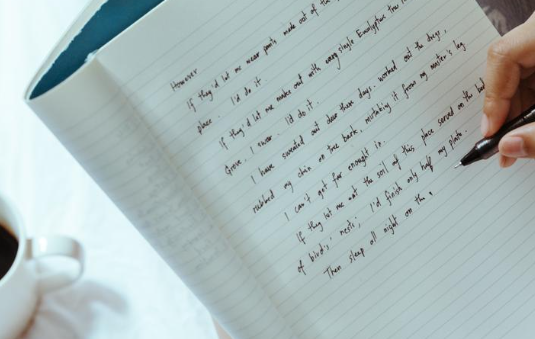 However
If they'd let me wear pants made out of the
place. I'd do it.
If they'd let me make out with every single Eucalyptus tree in
Grove. I swear. I'd do it.
I have sweated out dear these days, worked out the dregs,
rubbed my chin on the bark, mistaking it from my master's leg
I can't get far enough in.
If they let me eat the soil of this place served on the bed
of birds' nests, I'd finish only half my plate.
Then sleep all night on the